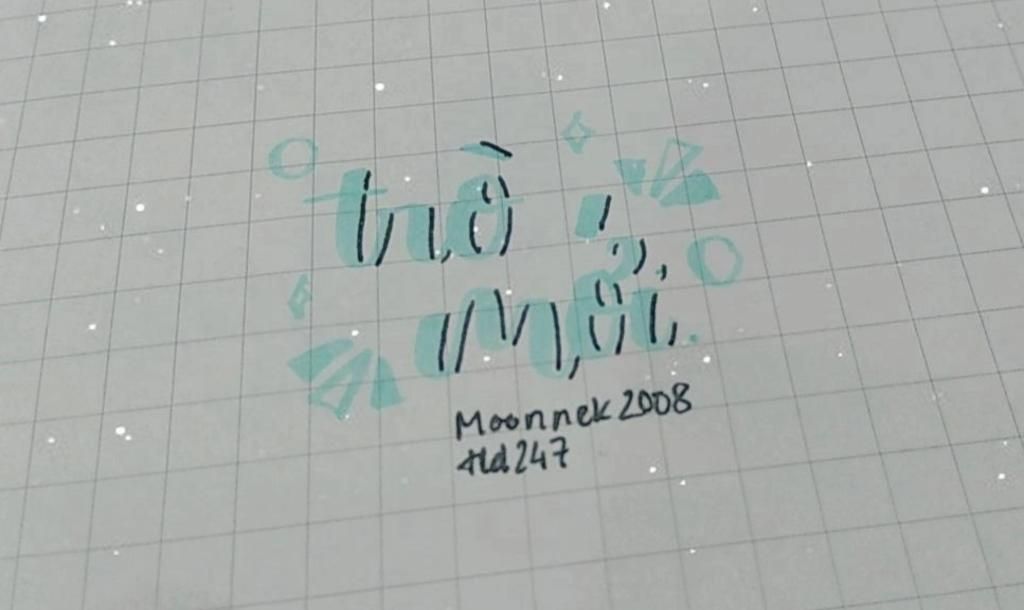 trò
mới
Moonnek2008
tld247